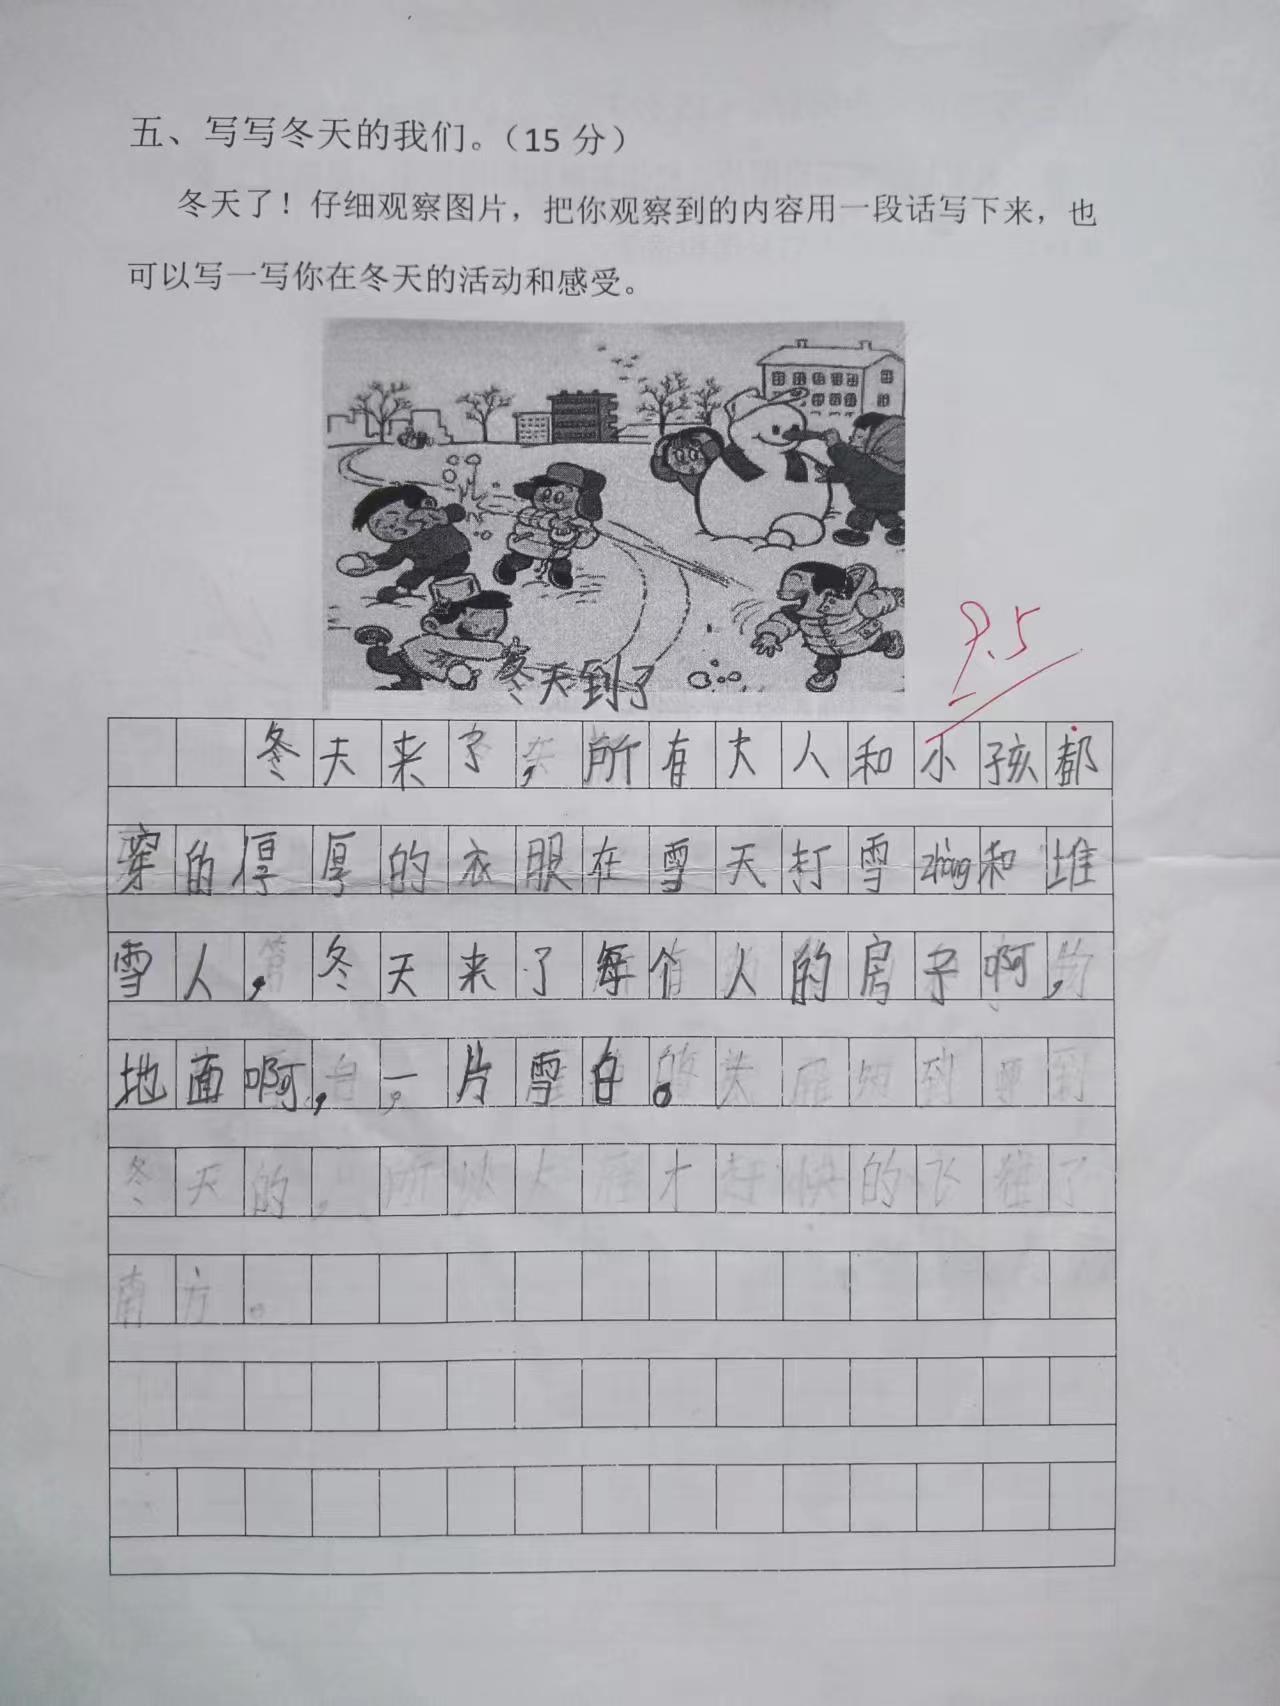 五、写写冬天的我们。（15 分）
冬天了！仔细观察图片，把你观察到的内容用一段话写下来，也
可以写一写你在冬天的活动和感受。
冬天到了
9.5
冬天来了，所有大人和小孩都
穿的厚厚的衣服在雪天打雪zhàng和堆
雪人，冬天来了每个人的房子啊，
地面啊，一片雪白。
冬天的，所以大雁才赶快的飞往了
南方。